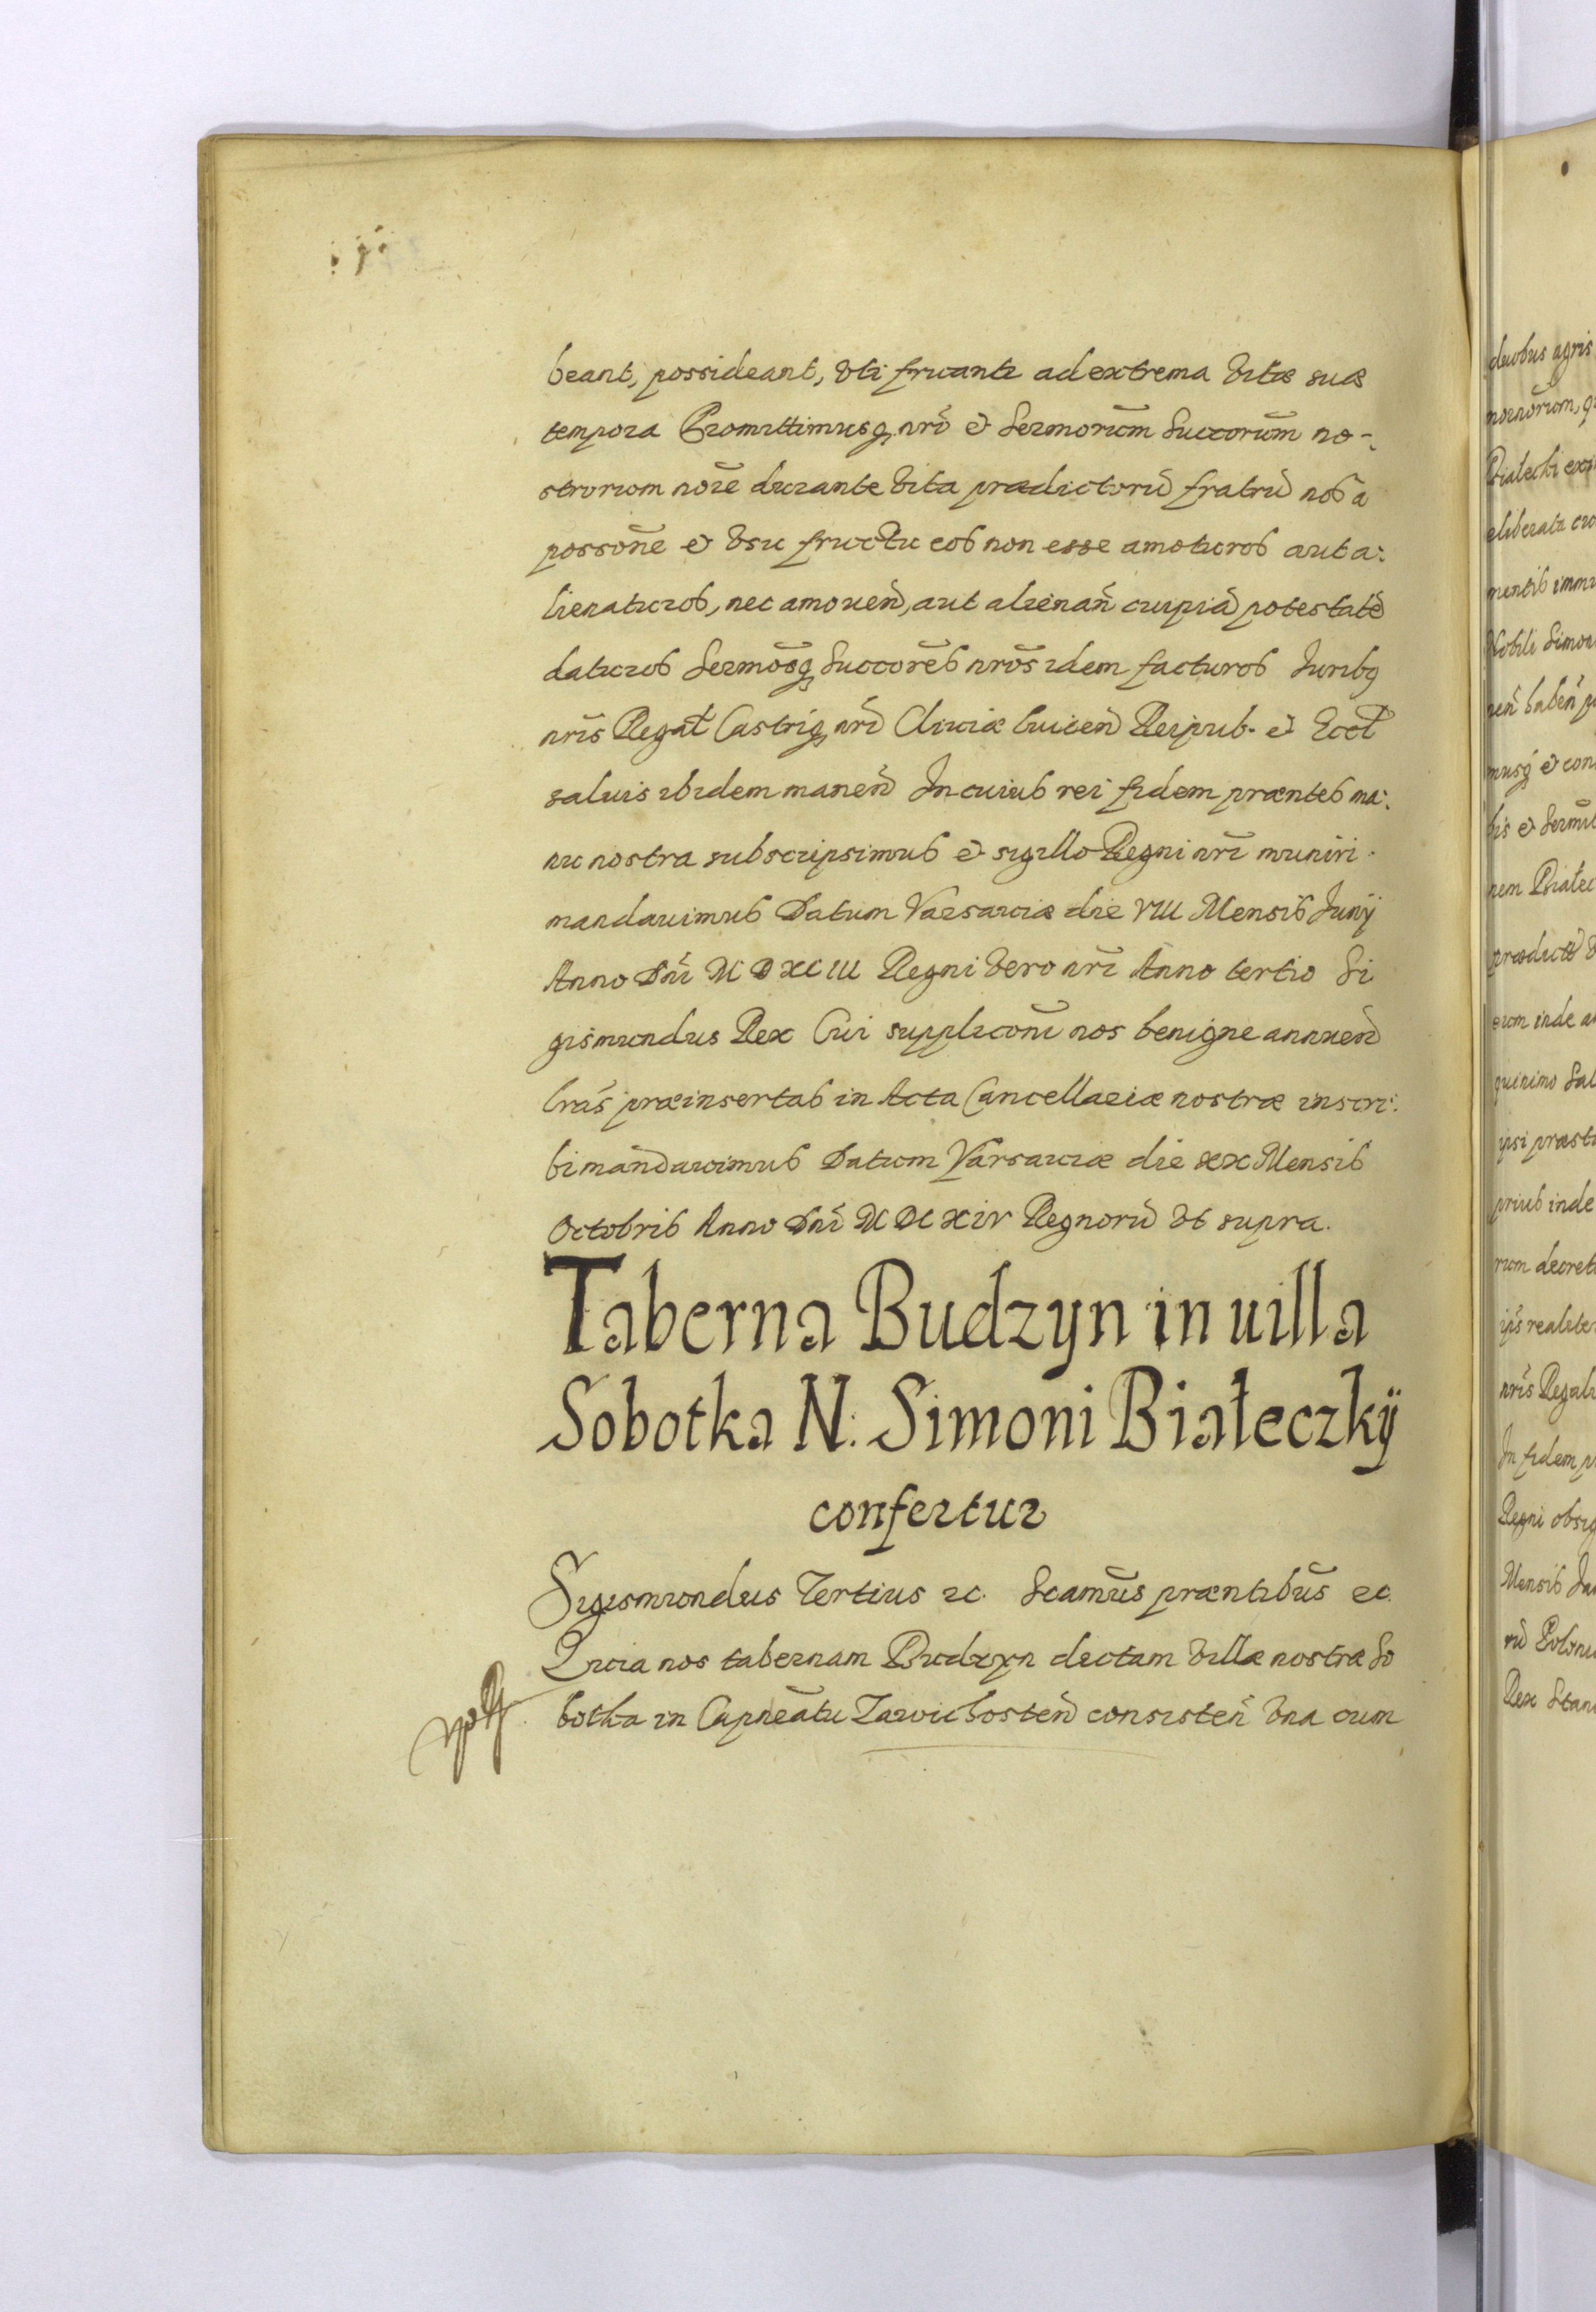 beant, possideant, vti fruantr ad extrema vitæ suæ
tempora Promittimusq, nrō & Sermorum̄ Succorum̄ no-
strorum noīe durante vita prædictorū fratrū nos a
possōne & vsu fructu eos non esse amoturos aut a:
lienaturos, nec amouen̄, aut alienan̄ cuipiā potestatē
daturos Sermōsq, Succorēs nrōs idem facturos Juribq
nrīs Regal̄ Castriq, nrī Cliuiæ huicen̄ Reipub. & Eccl̄
saluis ibidem manen̄ In cuius rei fidem præntes ma:
nu nostra subscripsimus & sigillo Regni nrī muniri
mandauimus Datum Varsauiæ die VIII Mensis Junij
Anno Dnī M D XC III Regni vero nrī Anno tertio Si
gismundus Rex Cui supplicōni nos benigne annuen̄
lrās præinsertas in Acta Cancellariæ nostræ inscri:
bi mandauimus Datum Varsauiæ die xx Mensis
Octobris Anno Dnī M DC XIV Regnorū vt supra.
Taberna Budzyn in uilla
Sobotka N: Simoni Białeczkÿ
confertur
Sigismundus Tertius &c. Scamūs præntibūs &c.
Quia nos tabernam Budzyn dictam villæ nostræ So
botka in Capneātu Zawichosten̄ consisten̄ vna cum
duobus agris
Białecki
eliberatr
Nobili Simon
musq & con
bis & Sermis
nem Białec
eum inde a
quinimo Sal
ipsi præst
prius inde
rum decret
nrīs Regali
In fidem p
Regni obsig
Mensis Ja
rū Poloni
Rex Stan